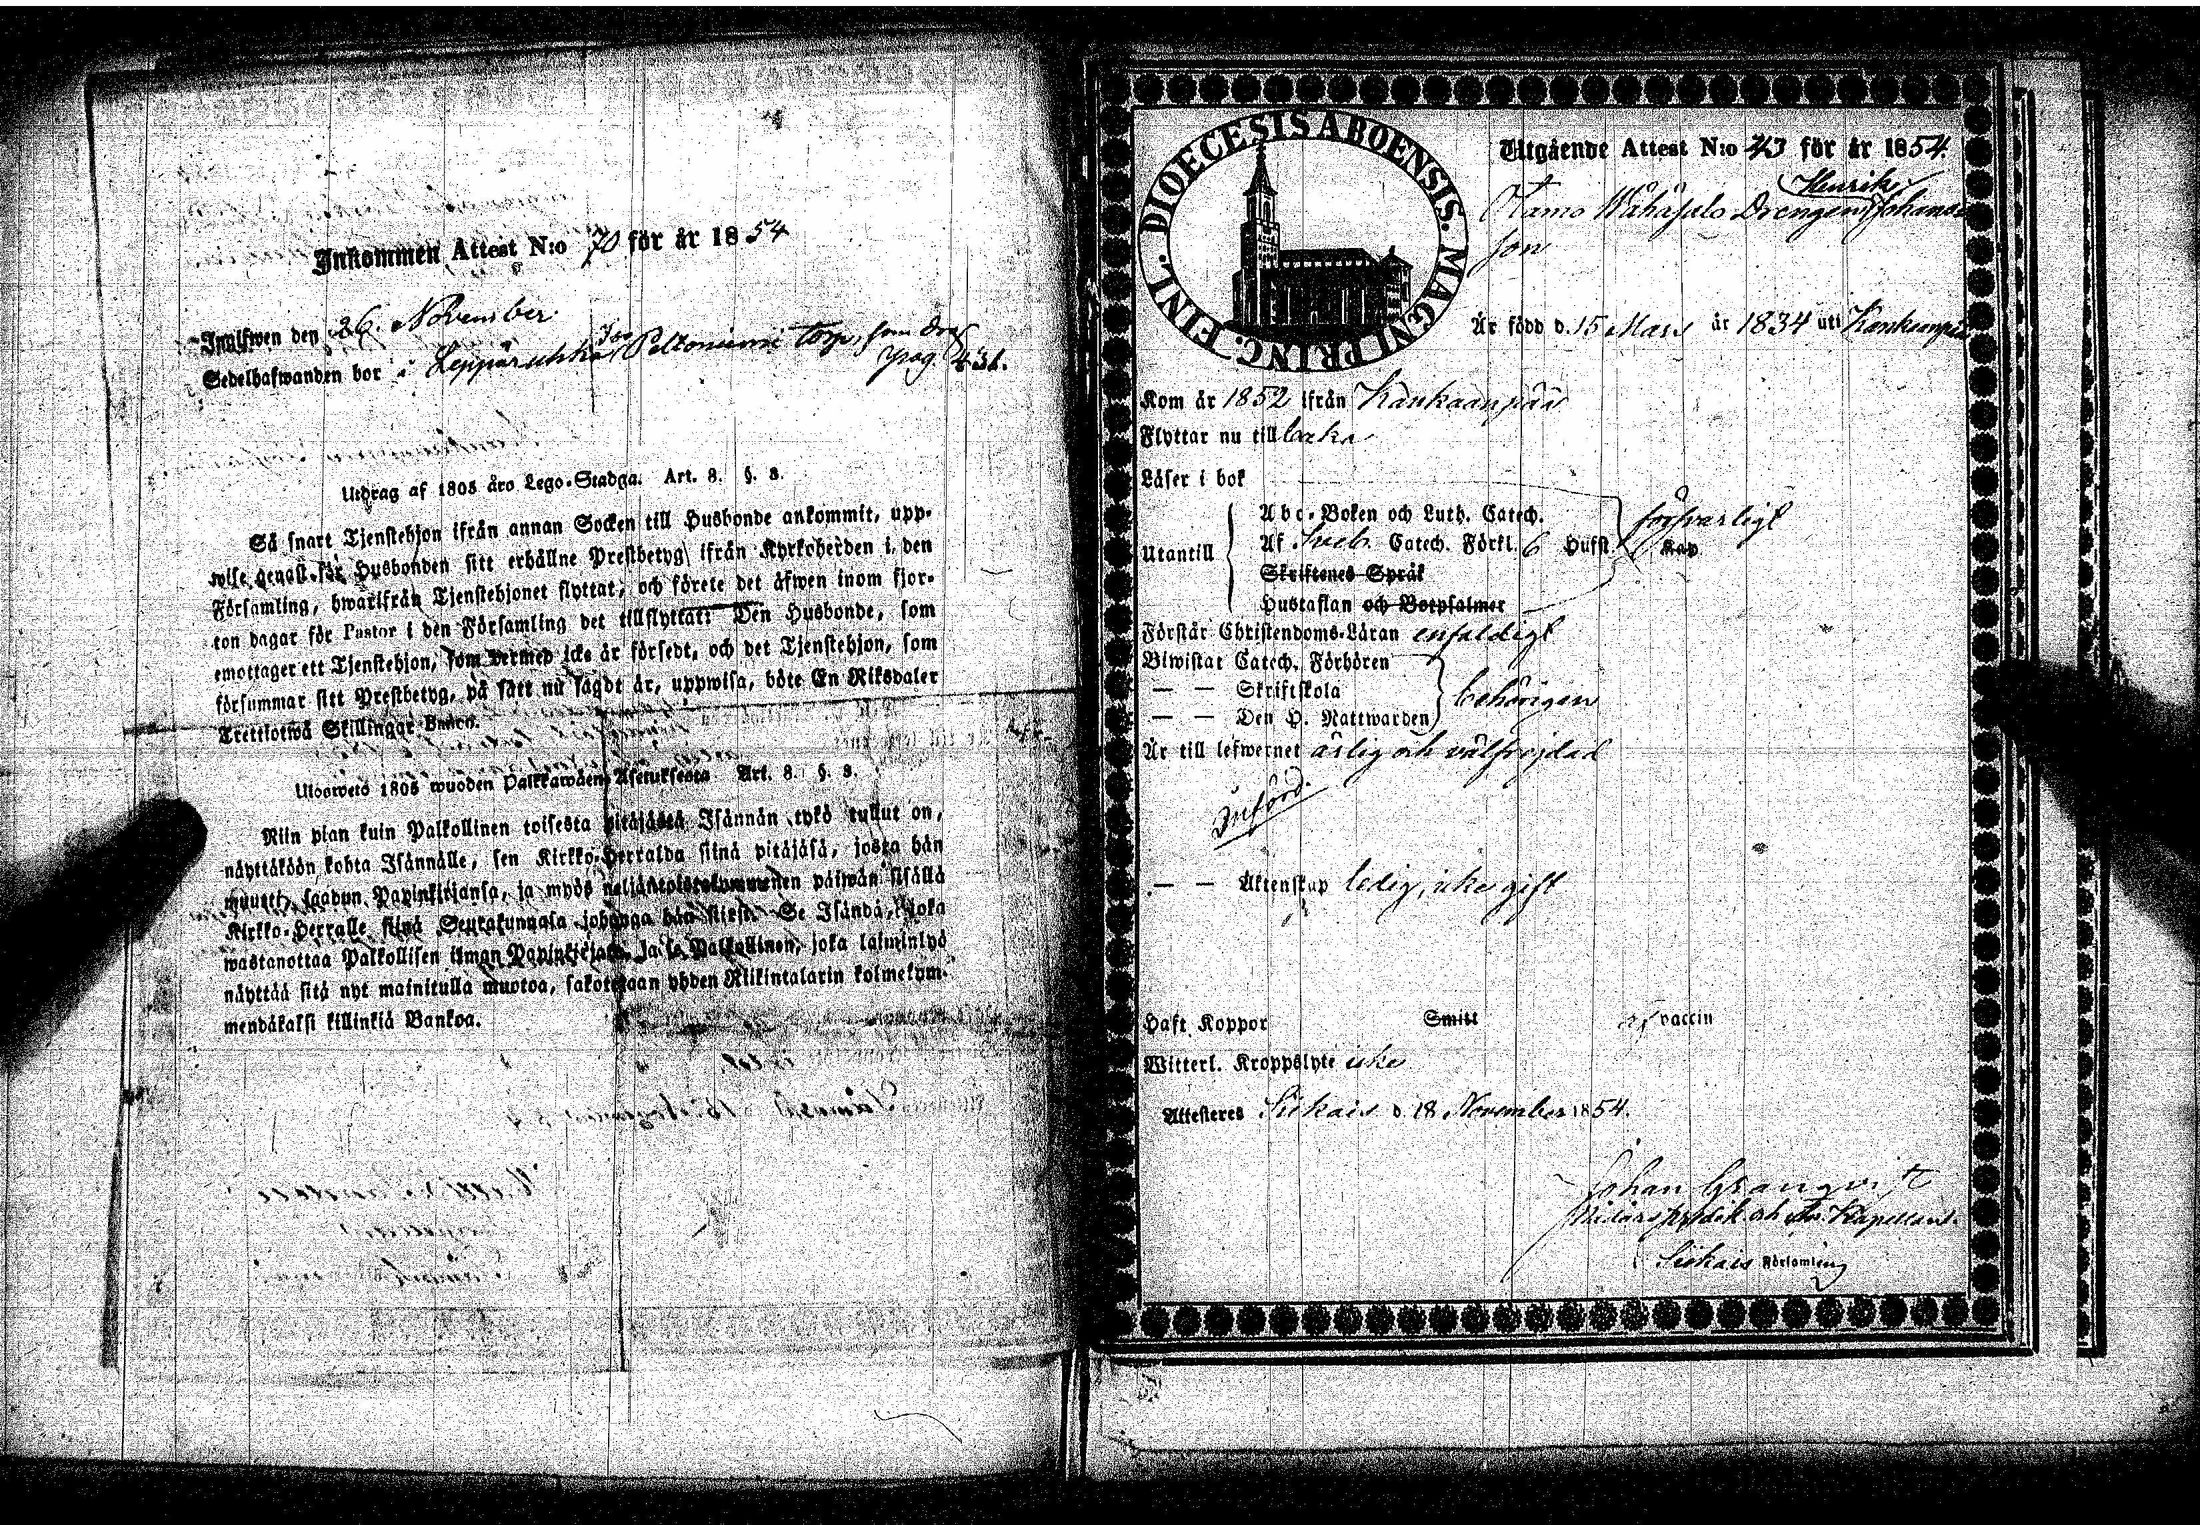 Inkommen Attest N:o 70 för år 1854
Inlifwen den 26 November
Sedelhafwanden bor i Leppäruhka Peltoniemi torp, som dräg
pag. 431.
Utdrag af 1805 års Lego-Stadga. Art. 8. §. 3.
Så snart Tjenstehjon ifrån annan Socken till Husbonde ankommit, upp-
wise genast för Husbonden sitt erhållne Prestbetyg ifrån Kyrkoherden i den
Församling, hwarifrån Tjenstehjonet flyttat, och förete det äfwen inom fjor-
ton dagar för Pastor i den Församling det tillflyttat: Den Husbonde, som
emottager ett Tjenstehjon, som dermed icke är försedt, och det Tjenstehjon, som
försummar sitt Prestbetyg, på sätt nu sagdt är, uppwisa, böte En Riksdaler
Trettiotwå Skillingar Banco.
Ulosweto 1805 wuoden Palkkawäen Asetuksesta Art. 8. §. 3.
Niin pian kuin Palkollinen toisesta pitäjästä Isännän tykö tullut on,
näyttäköön kohta Isännälle, sen Kirkko-Herralda siinä pitäjäsä, josta hän
muutti, saadun Papinkirjansa, ja myös neljäntoistakymmenen päiwän sisällä
Kirkko-Herralle siinä Seurakunnasa johonga hän siirsi. Se Isändä, joka
wastanottaa Palkollisen ilman Papinkirjata, ja se Palkollinen, joka laiminlyö
näyttää sitä nyt mainitulla muotoa, sakotetaan yhden Riikintalarin kolmekym-
mendäkaksi killinkiä Bankoa.
DIOECESIS ABOENSIS. MAGNI PRINC. FINL.
Utgående Attest N:o 43 för år 1854.
Henrik
Tamo Wähäsalo Drengen Johans
son
Är född d. 15 Mars år 1834 uti Kankanpä
Kom år 1852 ifrån Kankaanpää
Flyttar nu tillbaka
Läser i bok
Utantill
Abc-Boken och Luth. Catech. försvarligt
Af Sveb. Catech. Förkl. 6 Hufst. Kap
Skriftenes Språk
Hustaflan och Botpsalmer
Förstår Christendoms-Läran enfaldigt
Biwistat Catech. Förhören
— — Skriftskola behörigen
— — Den H. Nattwarden
Är till lefwernet ärlig och välfrejdad
Införd.
— — Äktenskap ledig, icke gift
Haft Koppor Smitt af vaccin
Witterl. Kroppslyte icke
Attesteras Siikais d. 18 November 1854.
Johan Granqvist
Siikais Församling